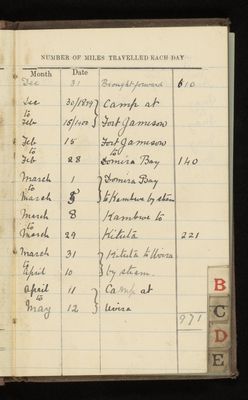 NUMBER OF MILES TRAVELLED EACH DAY
Month Date
Dec 31 Brought forward 610
Dec 30/1899 } Camp at
to
Feb 15/1900 } Fort Jameson
Feb 15 Fort Jameson
to to
Feb 28 Domira Bay 140
March 1 } Domira Bay
to
March 5 } to Kambwe by steam
March 8 Kambwe to
to
March 29 Kituta 221
March 31 } Kituta to Uvira
&
April 10 } by steam.
April 11 } Camp at
to
May 12 } Uvira
971
B
C
D
E